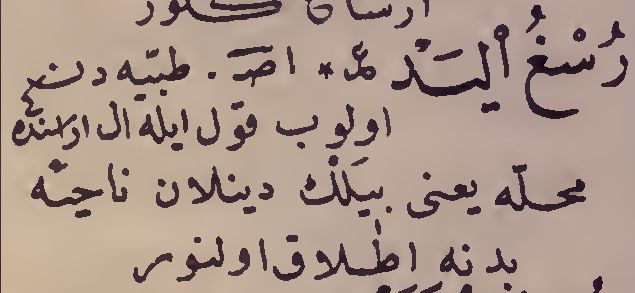 ارسال كلور
رُسْغُ اْليَدْ عر * اصـ . طبيه دنـ
اولوب قول ايله ال اراسنده
محلّه يعنى بيلَكْ دينلان ناحيۀ
بدنه اطلاق اولنور